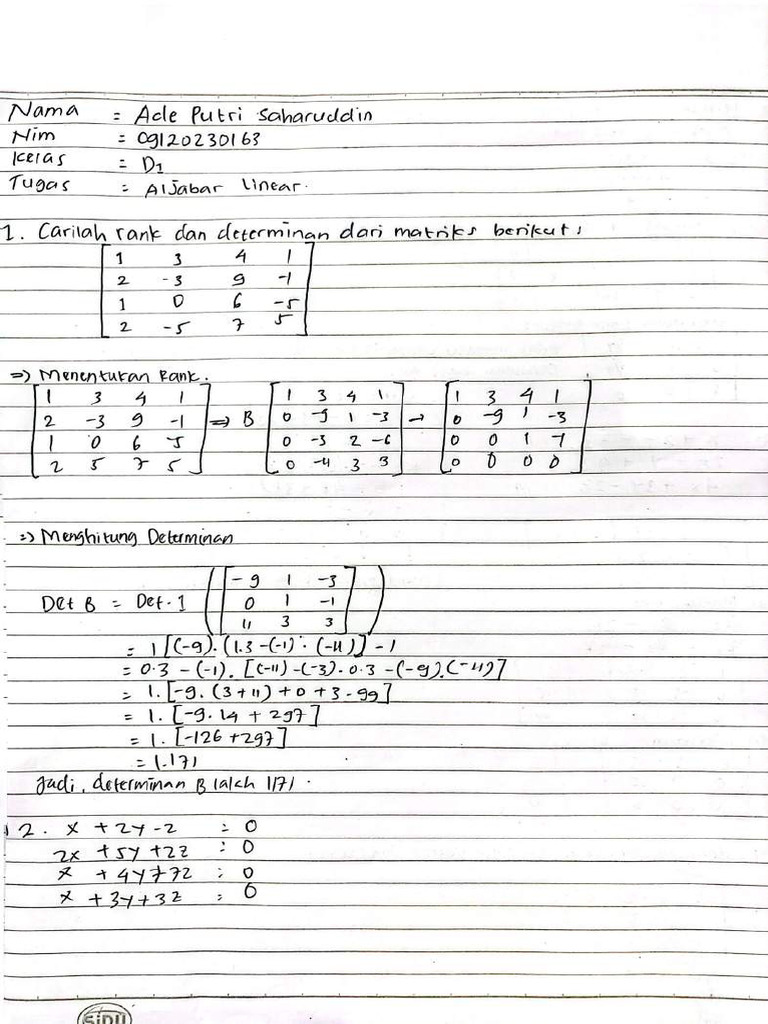 Nama = Ade Putri Saharuddin
Nim = 09120230163
Kelas = D1
Tugas = Aljabar Linear.
1. Carilah rank dan determinan dari matriks berikut:
1 3 4 1
2 -3 9 -1
1 0 6 -5
2 -5 7 5
=> Menentukan Rank.
1 3 4 1 => B 1 3 4 1 → 1 3 4 1
2 -3 9 -1 0 -9 1 -3 0 -9 1 -3
1 0 6 5 0 -3 2 -6 0 0 1 -1
2 5 7 5 0 -11 3 3 0 0 0 0
=> Menghitung Determinan
-9 1 -3
Det B = Det. 1 0 1 -1
11 3 3
= 1 [(-9). (1.3 -(-1) . (-11)] - 1
= 0.3 - (-1). [(-11) -(-3). 0.3 - (-9).(-11)]
= 1. [-9. (3+11) + 0 + 3 - 99]
= 1. [-9. 14 + 297]
= 1. [-126 + 297]
= 1.171
Jadi, determinan B ialah 1171.
2. x + 2y - 2 = 0
2x + 5y + 2z = 0
x + 4y + 7z = 0
x + 3y + 3z = 0
SiDU